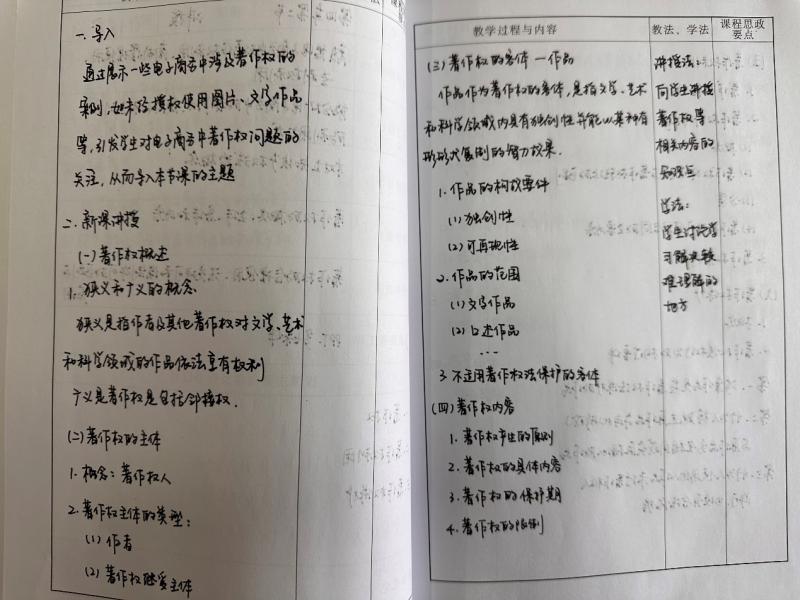 一. 导入
通过展示一些电子商务中涉及著作权的
案例,如未经授权使用图片、文字作品
等,引发学生对电子商务中著作权问题的
关注,从而导入本节课的主题
二. 新课讲授
(一)著作权概述
1. 狭义和广义的概念.
狭义是指作者及其他著作权对文学、艺术
和科学领域的作品依法享有权利
广义是著作权是包括邻接权.
(二)著作权的主体
1. 概念:著作权人
2. 著作权主体的类型:
(1) 作者
(2) 著作权继受主体
教学过程与内容
(三)著作权的客体—作品
作品作为著作权的客体,是指文学、艺术
和科学领域内具有独创性并能以某种有
形形式复制的智力成果.
1. 作品的构成要件
(1) 独创性
(2) 可再现性
2. 作品的范围
(1) 文字作品
(2) 口述作品
...
3. 不适用著作权法保护的客体
(四)著作权内容
1. 著作权产生的原则
2. 著作权的具体内容
3. 著作权的保护期
4. 著作权的限制
教法、学法
讲授法:
向学生讲授
著作权等
相关内容的
知识点
学法:
学生讨论学
习解决较
难理解的
地方
课程思政
要点